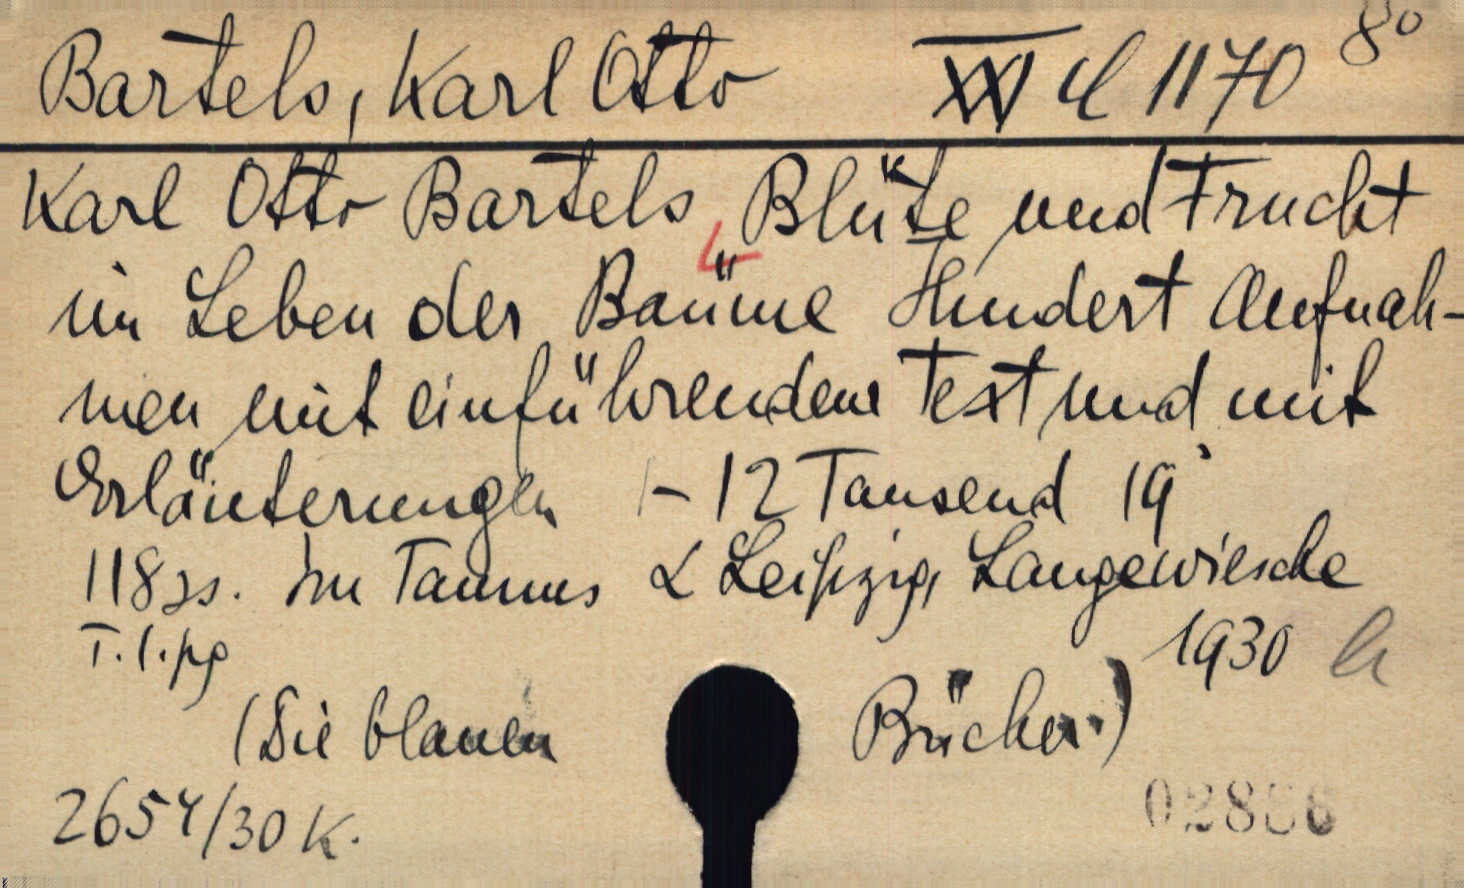 Bartels, Karl Otto XXI C 1170 8°
Karl Otto Bartels, Blüte und Frucht
im Leben der Bäume Hundert Aufnah-
men mit einführendem Text und mit
Erläuterungen 1-12 Tausend 19
118 ss. Im Taunus & Leipzig, Langewiesche
T. 1. pg 1930
(Die blauen Bücher.)
2654/30 K.
02886